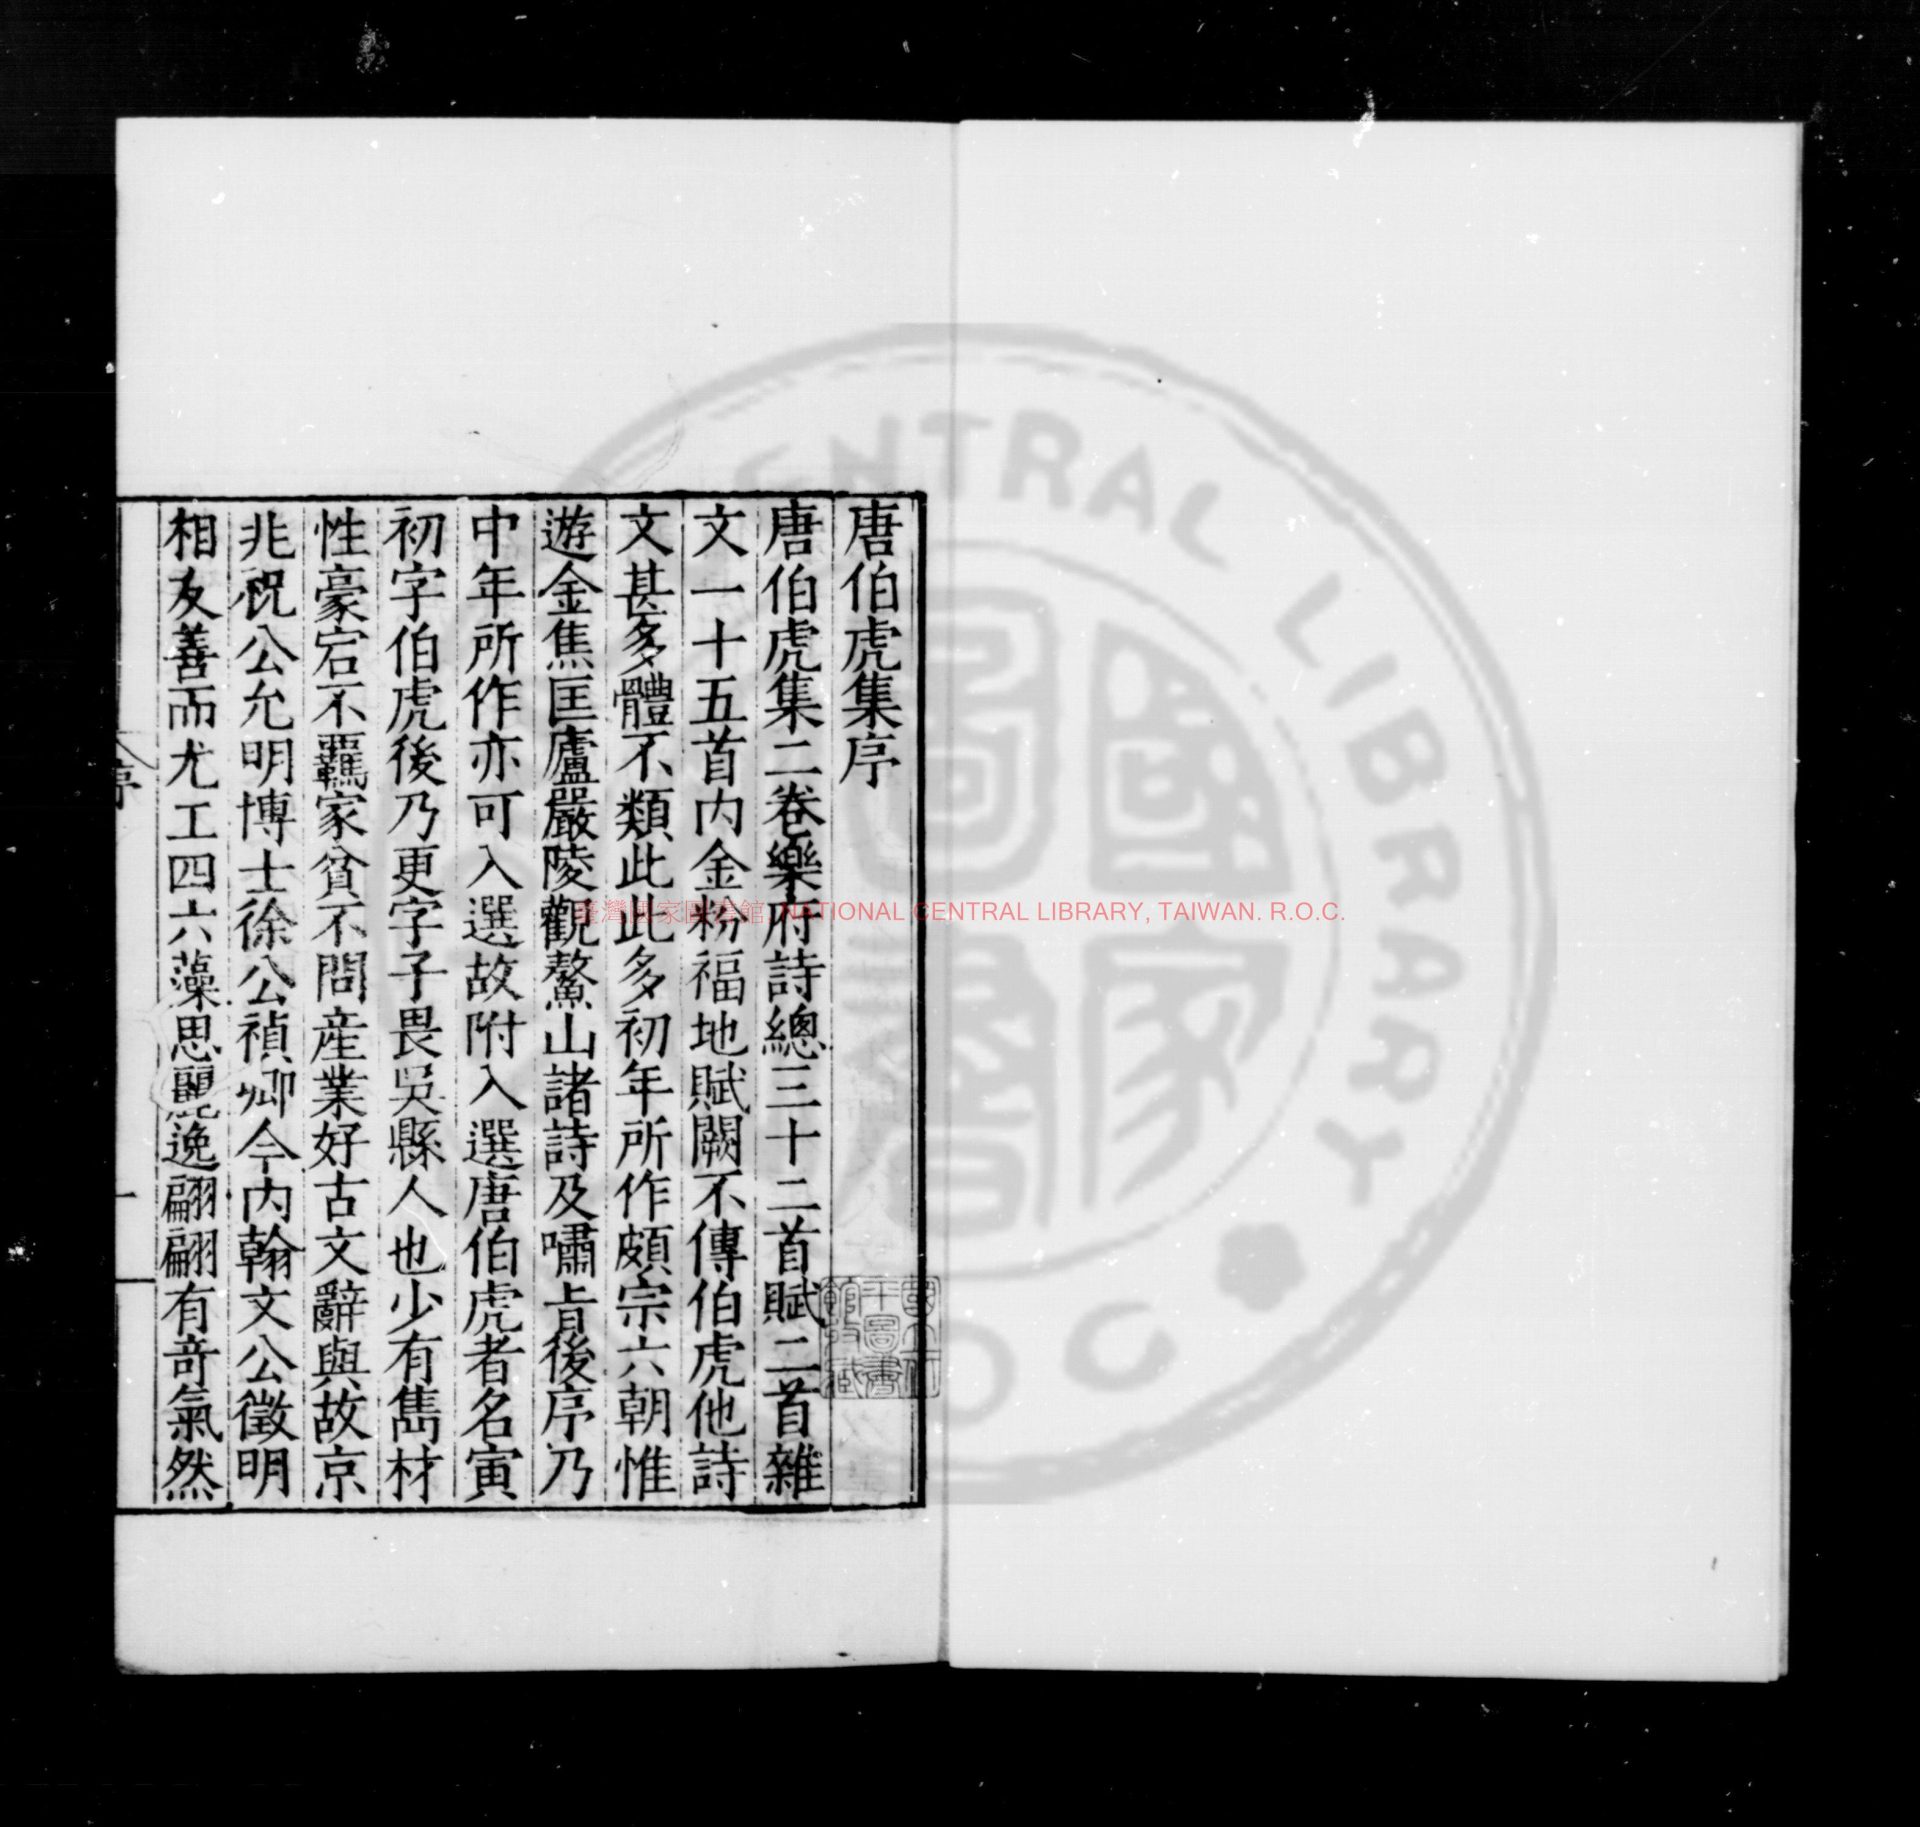 唐伯虎集序
唐伯虎集二卷樂府詩總三十二首賦二首雜
文一十五首内金粉福地賦闕不傳伯虎他詩
文甚多體不類此此多初年所作頗宗六朝惟
遊金焦匡廬嚴陵觀鰲山諸詩及嘯旨後序乃
中年所作亦可入選故附入選唐伯虎者名寅
初字伯虎後乃更字子畏吳縣人也少有雋材
性豪宕不羈家貧不問産業好古文辭與故京
兆祝公允明博士徐公禎卿今内翰文公徵明
相友善而尤工四六藻思麗逸翩翩有奇氣然
序
一
國立北平圖書館收藏
國家圖書
CENTRAL LIBRARY
臺灣國家圖書館, NATIONAL CENTRAL LIBRARY, TAIWAN. R.O.C.